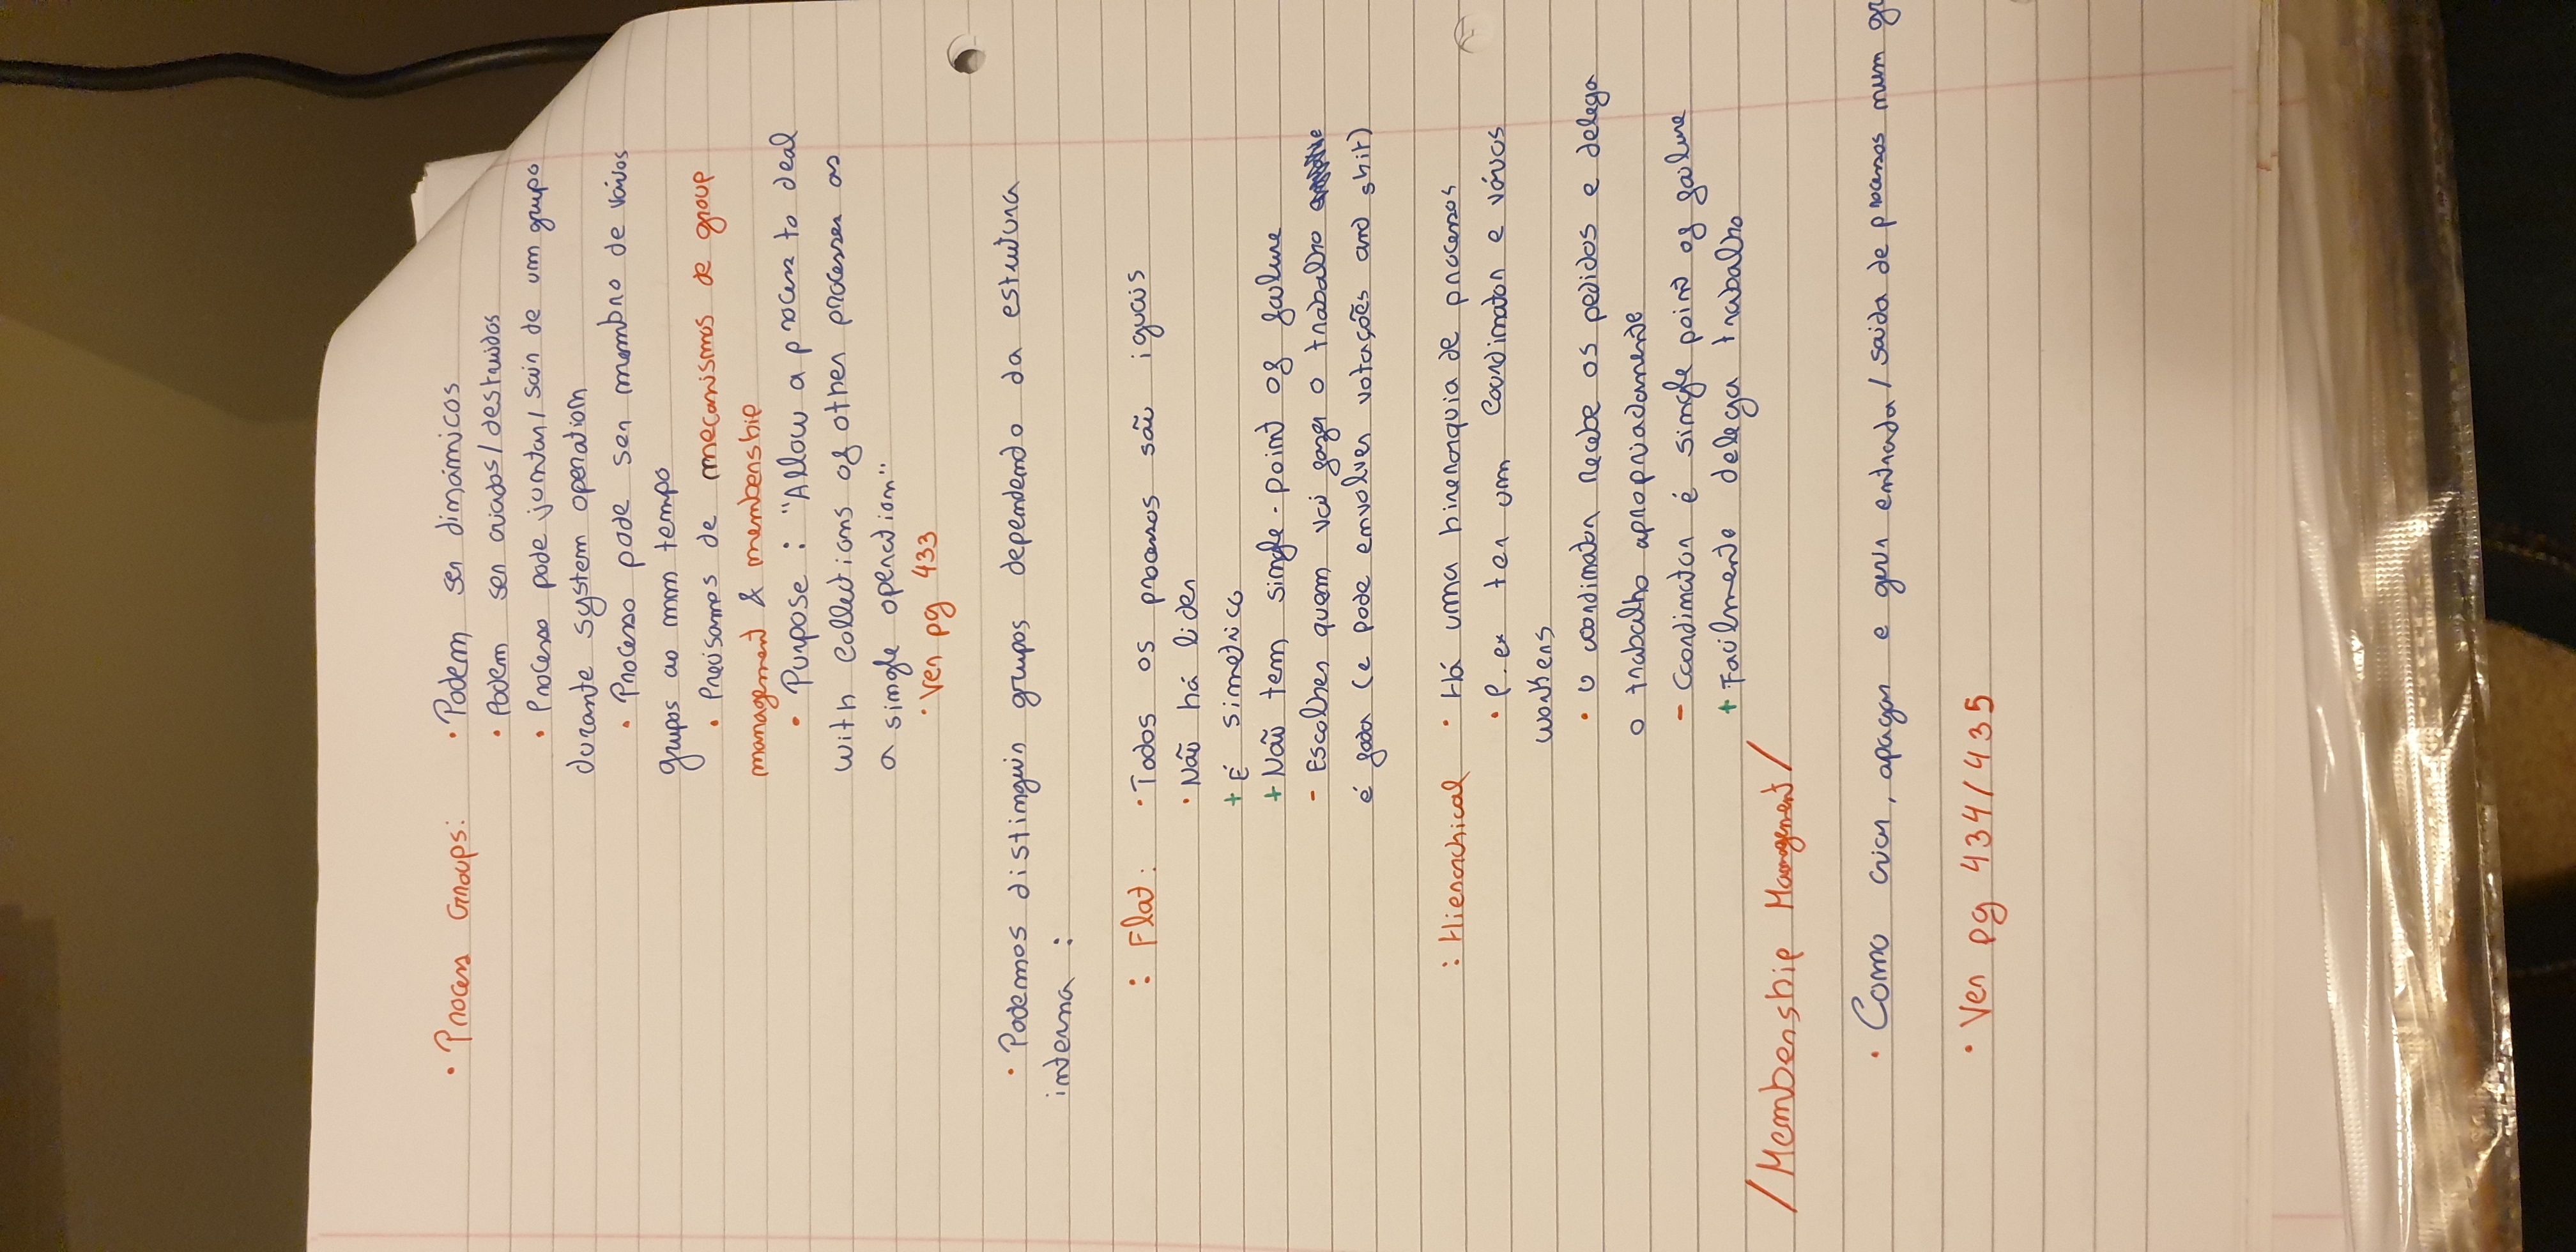 • Process Groups: • Podem ser dinâmicos
• Podem ser criados/destruidos
• Processo pode juntar/sair de um grupo
durante system operation
• Processo pode ser membro de vários
grupos ao mm tempo
• Precisamos de mecanismos de group
management & membership
• Purpose : "Allow a process to deal
with collections of other processes as
a single operation"
• Ver pg 433
• Podemos distinguir grupos dependendo da estrutura
interna :
: Flat: • Todos os processos são iguais
• Não há lider
+ É simetrico
+ Não tem single-point of failure
- Escolher quem vai fazer o trabalho
é foda (e pode envolver votações and shit)
: Hierarchical • Há uma hirerarquia de processos
• P.ex ter um Coordinator e vários
workers
• O coordinator recebe os pedidos e delega
o trabalho apropriadamente
- Coordinator é single point of failure
+ Facilmente delega trabalho
/Membership Management/
• Como criar, apagar e gerir entrada/saida de processos num gr
• Ver pg 434/435